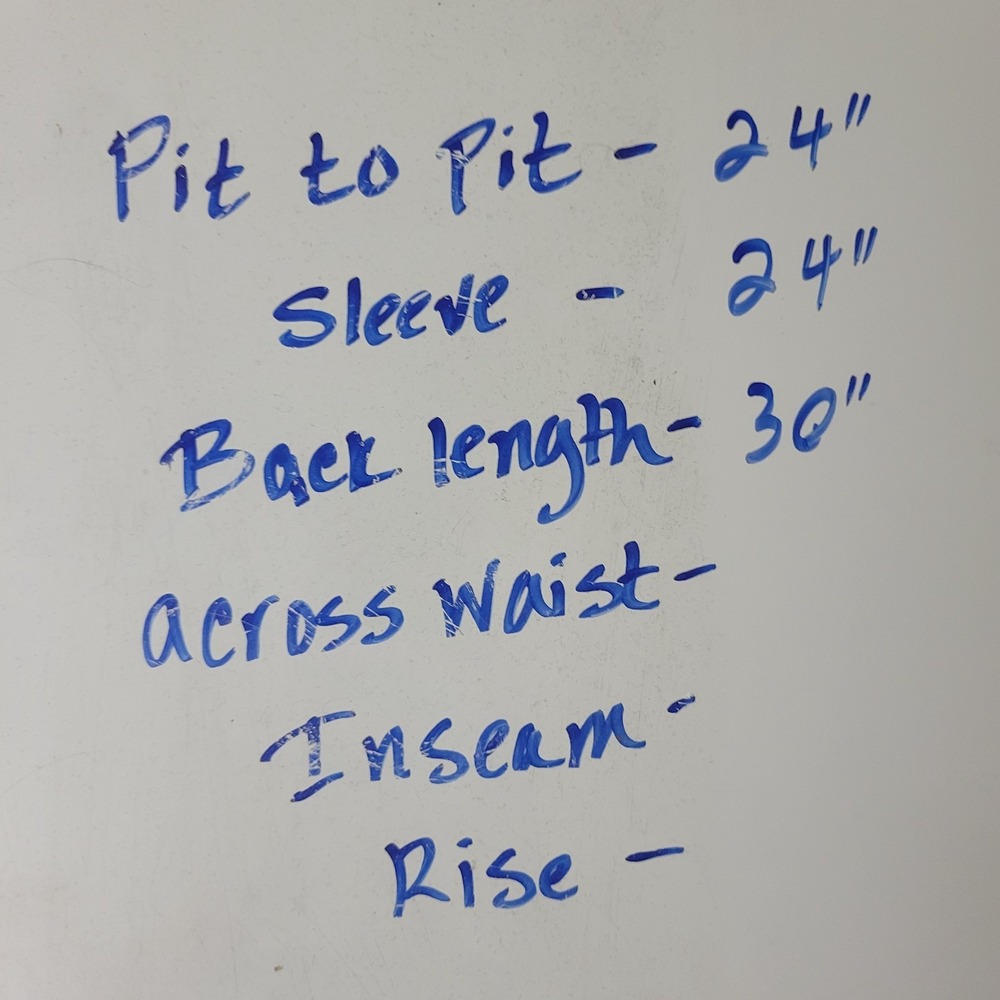 Pit to Pit - 24"
Sleeve - 24"
Back length - 30"
across Waist -
Inseam -
Rise -